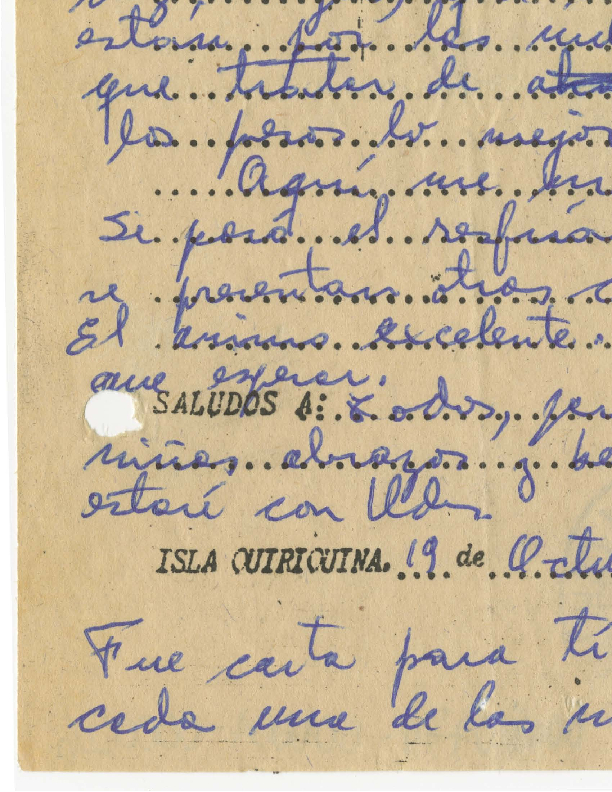 están por las
que tratar de
los pesos lo mejor
Aquí me
Si pasó el resfria
se presentan otros c
El ánimo excelente.
que esperar.
SALUDOS A: Todos, per
niñas, abrazos y be
estaré con Uds.
ISLA QUIRIQUINA. 19 de Octu
Fue carta para tí
cada una de las n